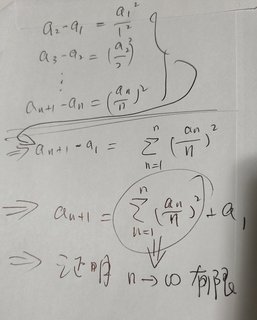 a₂-a₁ = a₁²/1²
a₃-a₂ = (a₂/2)²
⋮
aₙ₊₁-aₙ = (aₙ/n)²
⇒ aₙ₊₁-a₁ = ∑ₙ₌₁ⁿ (aₙ/n)²
⇒ aₙ₊₁ = ∑ₙ₌₁ⁿ (aₙ/n)² + a₁
⇒ 证明 n→∞ 有限